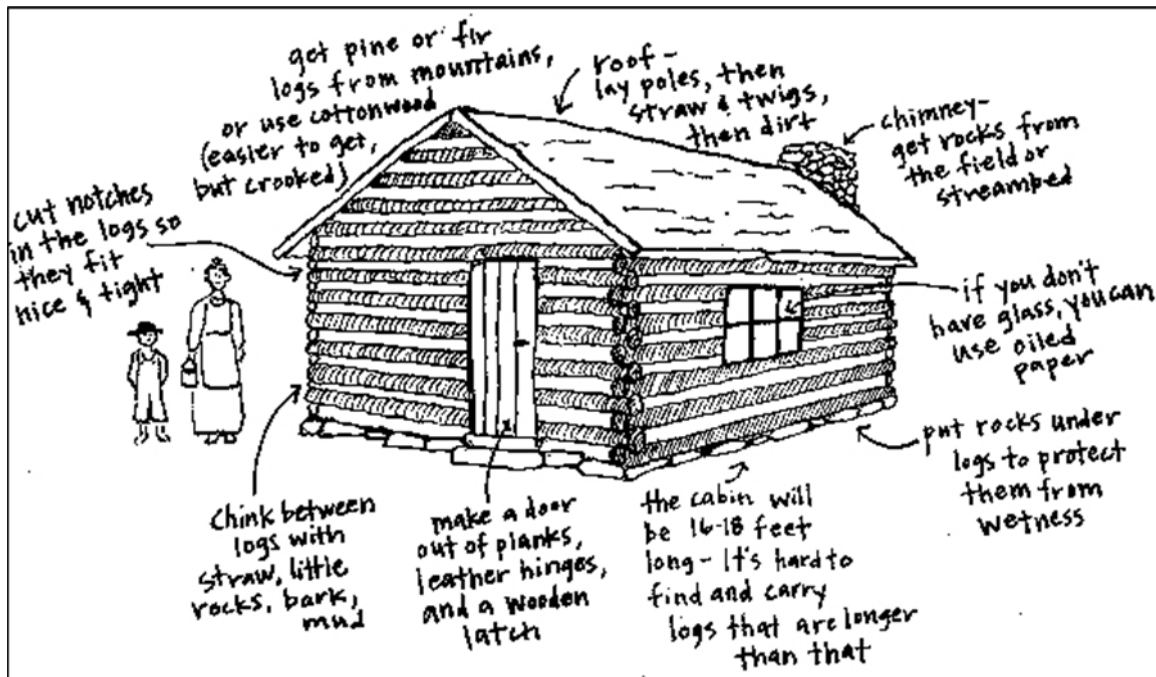 get pine or fir
logs from mountains,
or use cottonwood
(easier to get,
but crooked)
roof-
lay poles, then
straw & twigs,
then dirt
chimney-
get rocks from
the field or
streambed
cut notches
in the logs so
they fit
nice & tight
if you don't
have glass, you can
use oiled
paper
put rocks under
logs to protect
them from
wetness
chink between
logs with
straw, little
rocks, bark,
mud
make a door
out of planks,
leather hinges,
and a wooden
latch
the cabin will
be 16-18 feet
long- It's hard to
find and carry
logs that are longer
than that